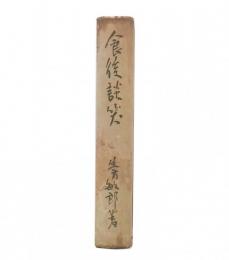 食後談笑
生方敏郎著